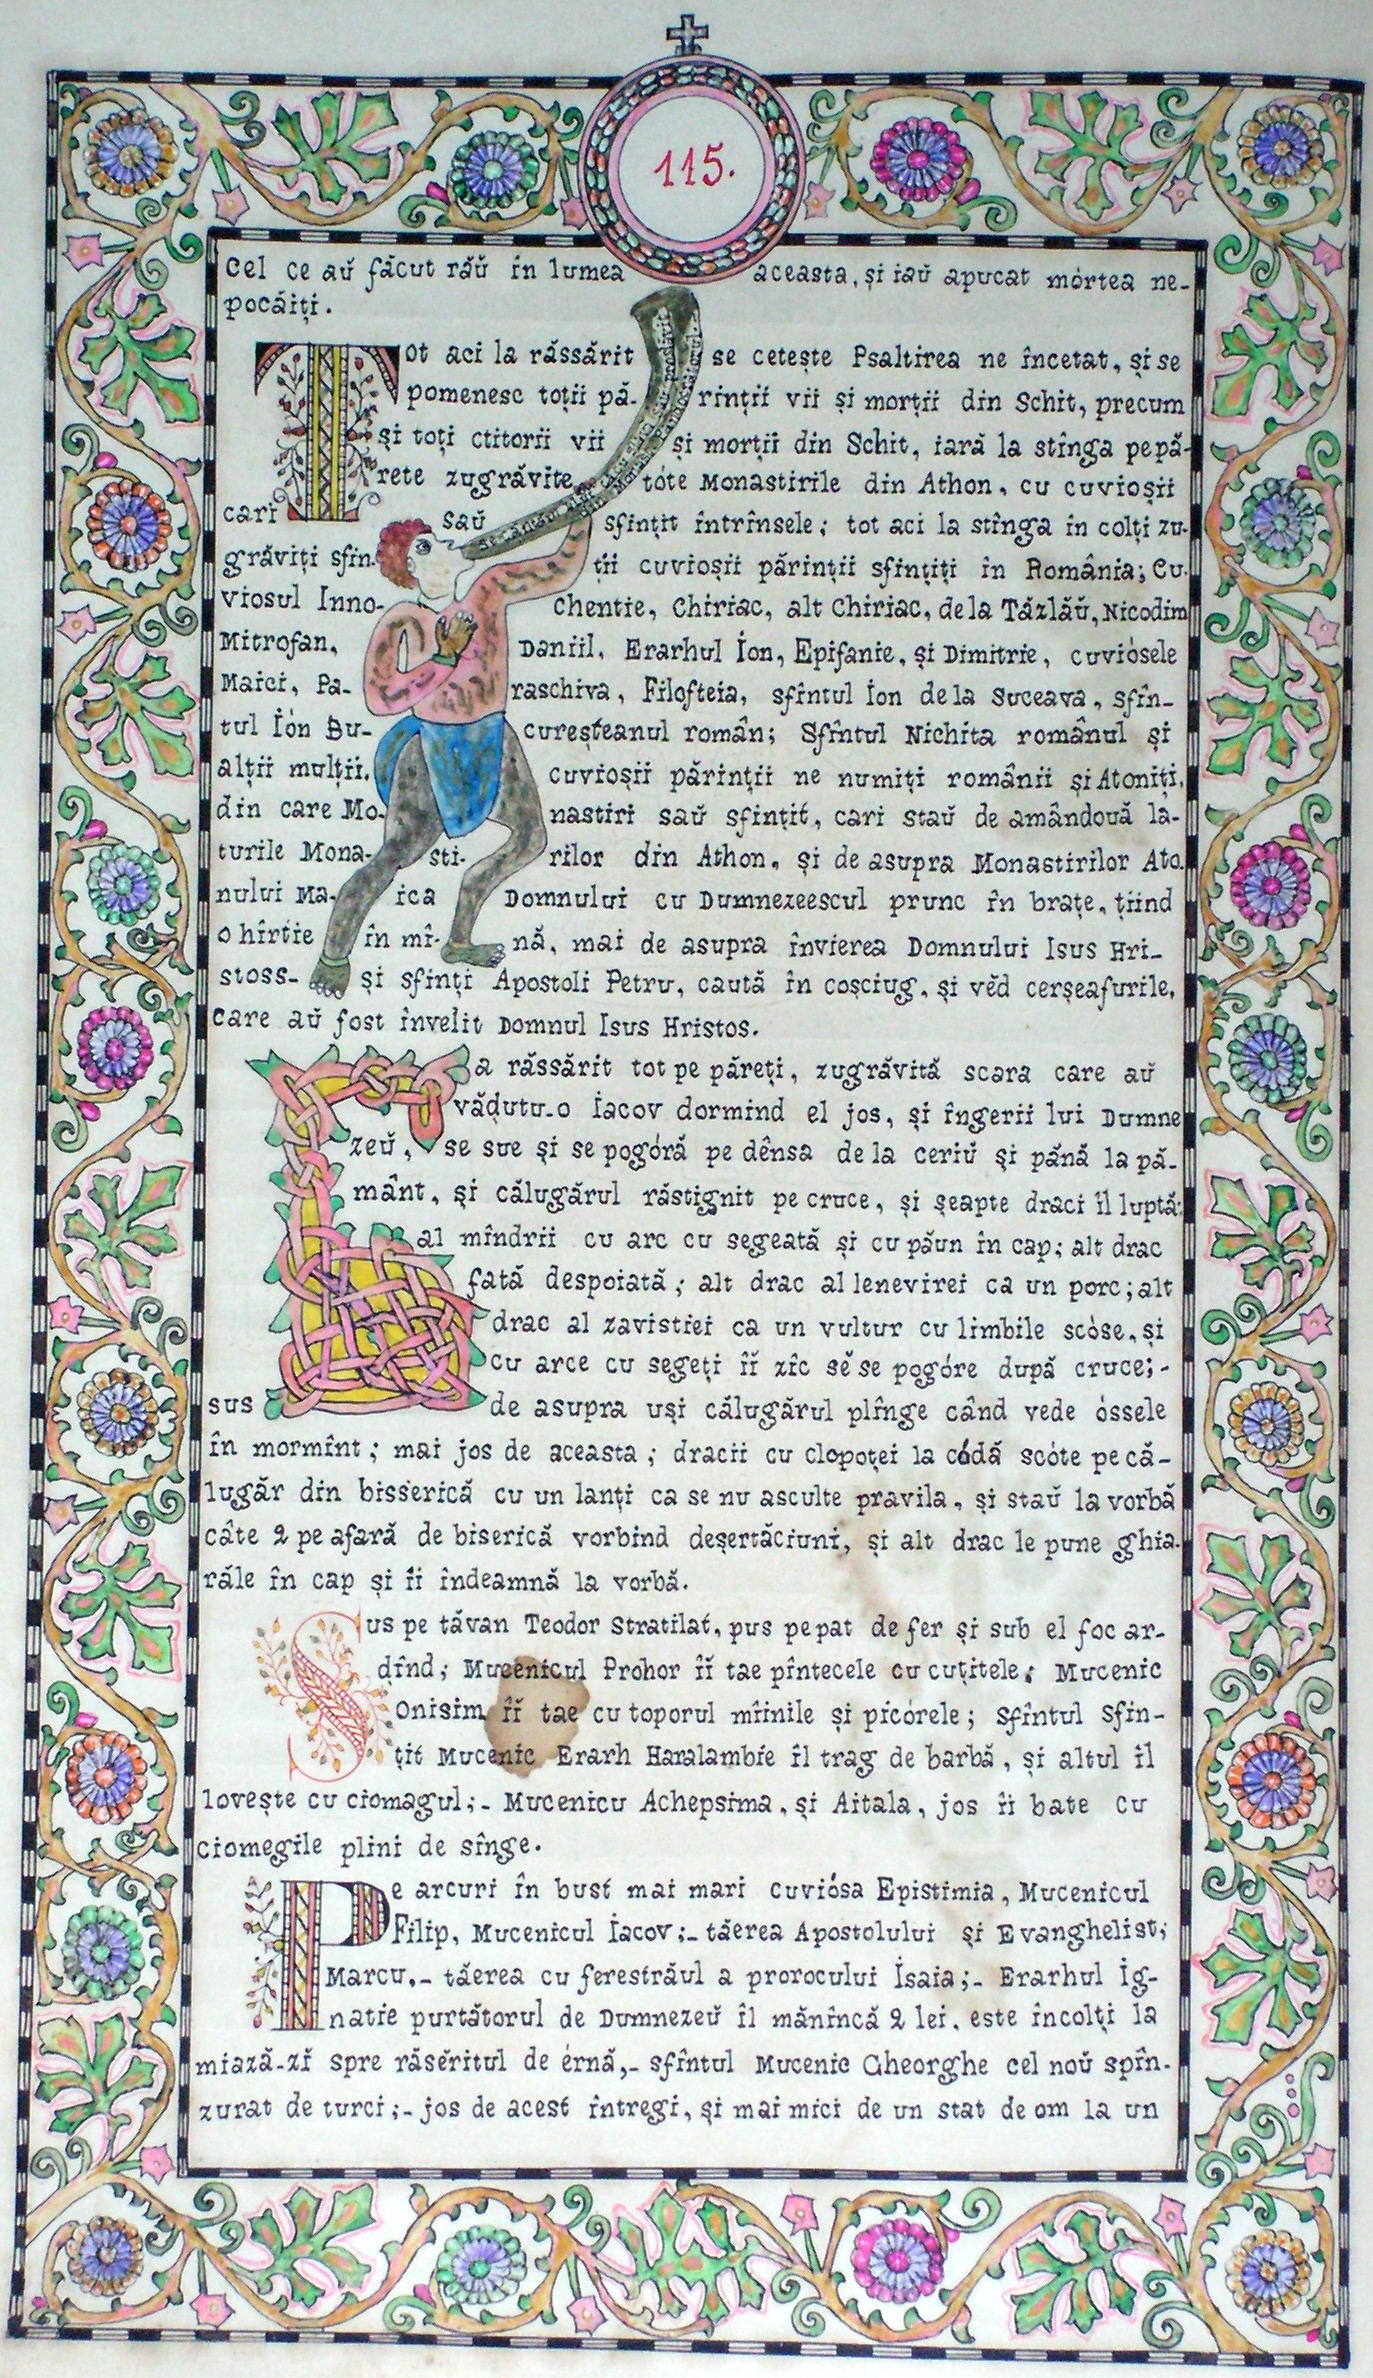 115.
Cel ce aŭ făcut răŭ in lumea aceasta, și iaŭ apucat mórtea ne-
pocăiți.
Tot aci la răssărit se cetește Psaltirea ne încetat, și se
pomenesc toții pă- rinții vii și morții din Schit, precum
și toți ctitorii vii și morții din Schit, iară la stînga pe pă-
rete zugrăvite tóte Monastirile din Athon, cu cuvioșii
cari saŭ sfințit întrînsele; tot aci la stînga în colți zu-
grăviți sfin- ții cuvioșii părinții sfințiți în România; Cu-
viosul Inno- chentie, Chiriac, alt Chiriac, de la Tázlăŭ, Nicodim
Mitrofan, Daniil, Erarhul Íon, Epifanie, și Dimitrie, cuviósele
Maici, Pa- raschiva, Filofteia, sfîntul Ion de la Suceava, sfîn-
tul Ión Bu- cureșteanul român; Sfîntul Nichita românul și
alții mulții, cuvioșii părinții ne numiți românii și Atoniți,
din care Mo- nastiri saŭ sfințit, cari staŭ de amândouă la-
turile Mona- sti- rilor din Athon, și de asupra Monastirilor Ato-
nului Ma- ica Domnului cu Dumnezeescul prunc în brațe, țiind
o hîrtie în mî- nă, mai de asupra învierea Domnului Isus Hri-
stoss- și sfinți Apostoli Petru, caută în coșciug, și vĕd cerșeafurile,
care aŭ fost învelit Domnul Isus Hristos.
La răssărit tot pe păreți, zugrăvită scara care aŭ
văḍutu-o Iacov dormind el jos, și îngerii lui Dumne
zeŭ, se sue și se pogóră pe dênsa de la ceriŭ și pănă la pă-
mânt, și călugărul răstignit pe cruce, și șeapte draci îl luptă:
al mîndrii cu arc cu segeată și cu păun în cap; alt drac
fată despoiată; alt drac al lenevirei ca un porc; alt
drac al zavistiei ca un vultur cu limbile scóse, și
cu arce cu segeți îĭ zic sĕ se pogóre după cruce;-
sus de asupra uși călugărul plînge când vede óssele
în mormînt; mai jos de aceasta; dracii cu clopoței la códă scóte pe că-
lugăr din bisserică cu un lanți ca se nu asculte pravila, și staŭ la vorbă
câte 2 pe afară de biserică vorbind deșertăciuni, și alt drac le pune ghia-
răle în cap și îi îndeamnă la vorbă.
Sus pe tăvan Teodor Stratilat, pus pe pat de fer și sub el foc ar-
dînd; Mucenicul Prohor îĭ tae pîntecele cu cuțitele; Mucenic
Onisim îĭ tae cu toporul mîinile și picórele; Sfîntul Sfin-
țit Mucenic Erarh Haralambie îl trag de barbă, și altul îl
lovește cu ciomagul;- Mucenicu Achepsima, și Aitala, jos îi bate cu
ciomegile plini de sînge.
Pe arcuri în bust mai mari cuviósa Epistimia, Mucenicul
Filip, Mucenicul Iacov;- tăerea Apostolului și Evanghelist;
Marcu,- tăerea cu ferestrăul a prorocului Isaia;- Erarhul Ig-
natie purtătorul de Dumnezeŭ îl mănîncă 2 lei, este în colți la
miază-zĭ spre răsĕritul de érnă,- sfîntul Mucenic Gheorghe cel noŭ spîn-
zurat de turci;- jos de acest întregi, și mai mici de un stat de om la un